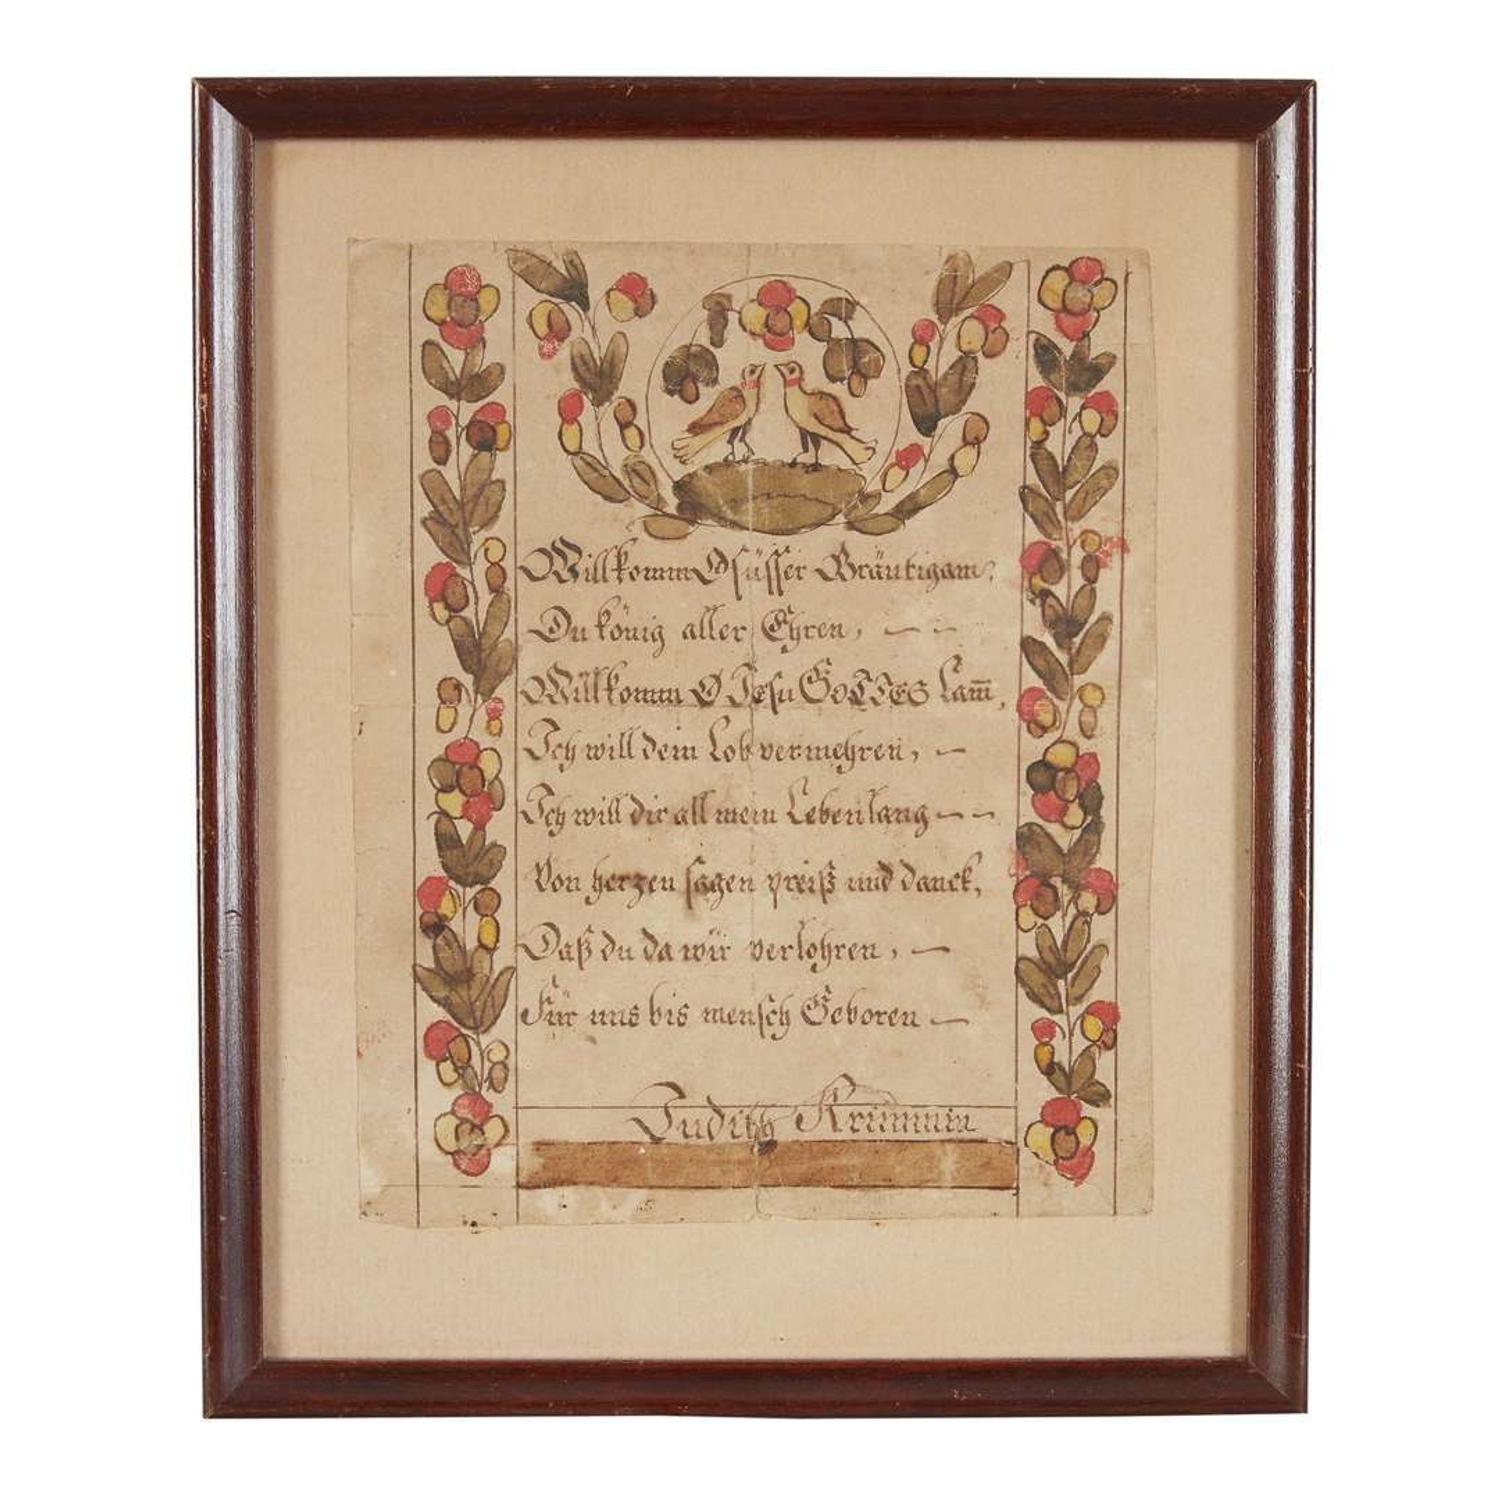 Willkomm O süsser Bräutigam,
Du könig aller Ehren, — —
Willkomm O Jesu GOTTES Lam̅,
Ich will dein Lob vermehren, —
Ich will dir all mein Lebenlang — —
Von herzen sagen preiß und danck,
Daß du da wir verlohren, —
Für uns bis mensch Geboren —
Judith Krimmin